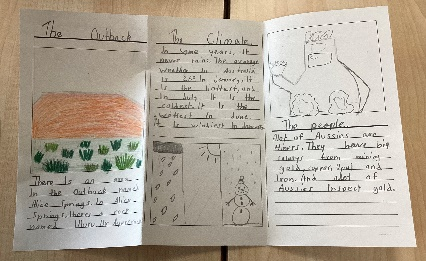 The Outback
There is an area
In the Outback named
Alice Springs. In Alice
Springs, theres a rock
named Uluru
The Climate.
In some years, It
never rains. The average
weather in Australia
In January, It
Is the hottest, and
In July It Is the
coldest. It Is the
In June.
The people.
Alot of Aussies are
Miners. They have big
from mining
gold, copper, and
Iron. And alot of
Aussies gold.